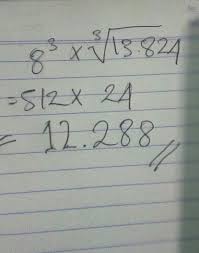 8³ × ∛13.824
= 512 × 24
= 12.288